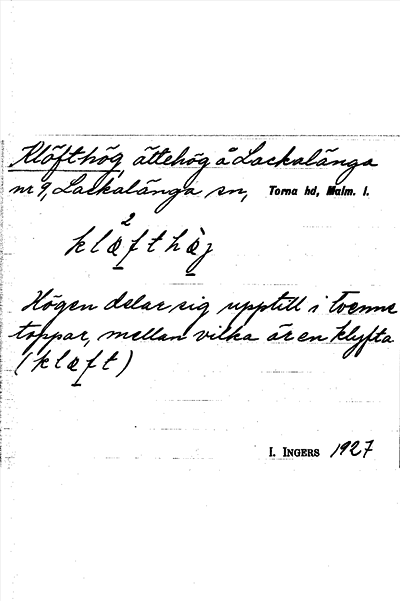 Klöfthög, ättehög å Lackalänga
nr 9, Lackalänga sn, Torna hd, Malm. l.
2
Högen delar sig upptill i tvenne
toppar, mellan vilka är en klyfta
I. INGERS 1927